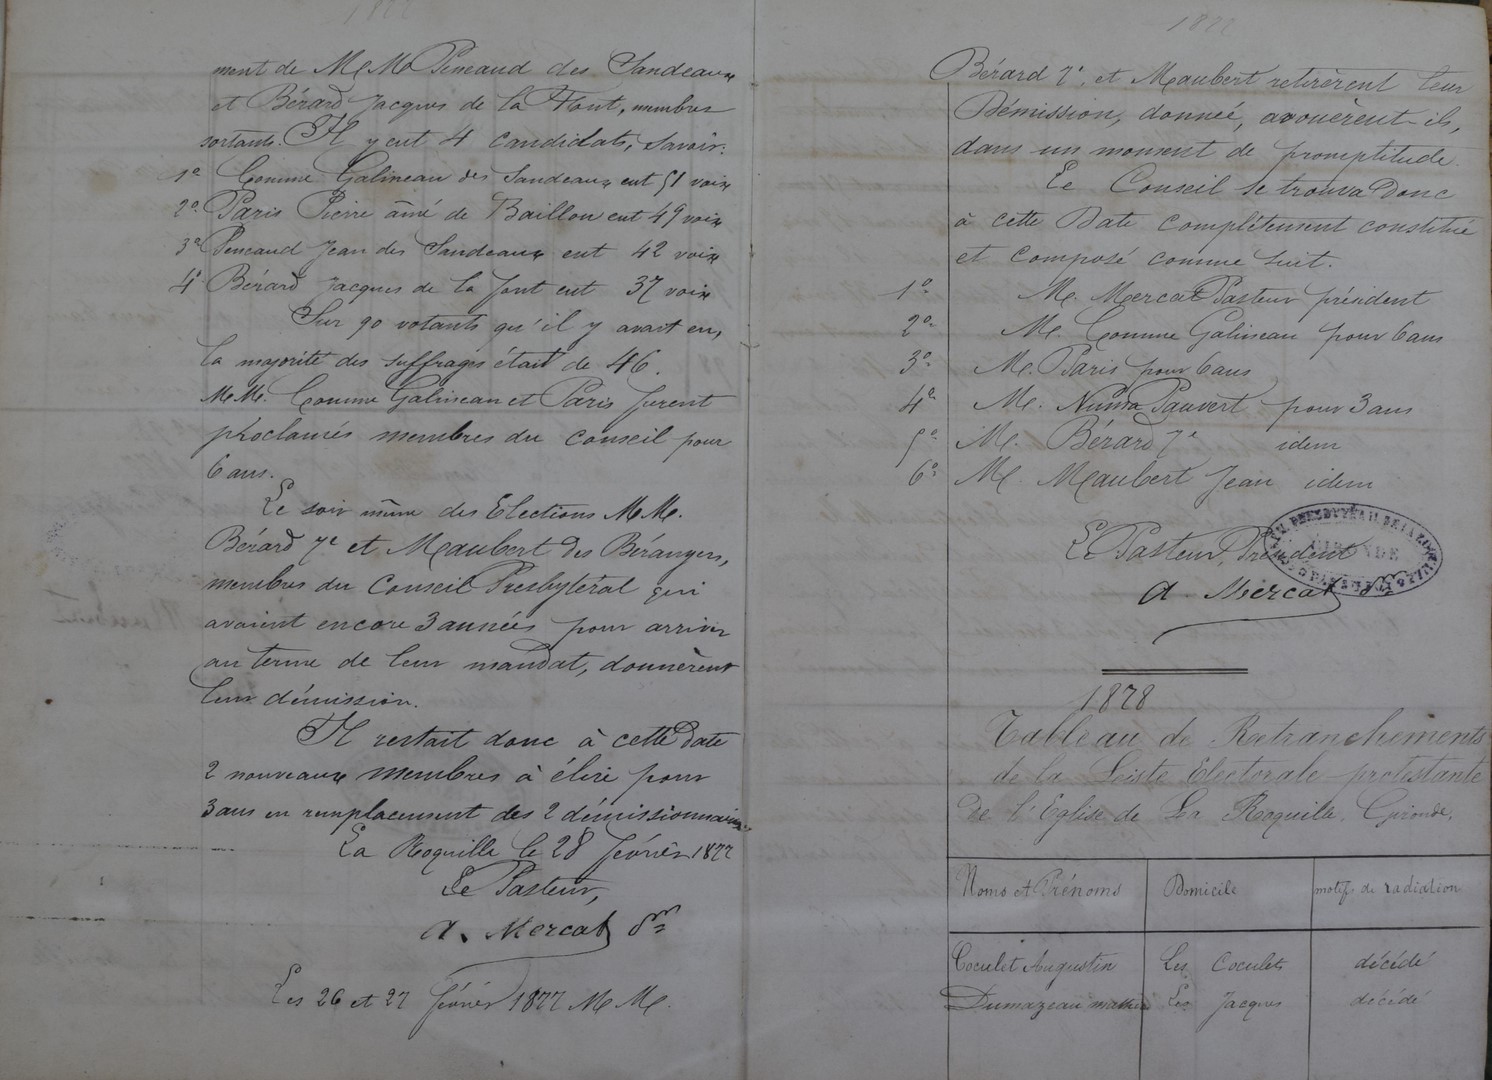 1877
ment de MM. Peneaud des Sandeaux
et Bérard Jacques de la Font, membres
sortants. Il y eut 4 candidats, savoir:
1º Comme Galineau des Sandeaux eut 51 voix
2º Paris Pierre aîné de Baillou eut 49 voix
3º Peneaud Jean des Sandeaux eut 42 voix
4º Bérard Jacques de la font eut 37 voix
Sur 90 votants qu'il y avait eu,
la majorité des suffrages était de 46.
MM. Comme Galineau et Paris furent
proclamés membres du conseil pour
6 ans.
Le soir même des Elections MM.
Bérard Je et Maubert des Bérangers,
membres du Conseil Presbytéral qui
avaient encore 3 années pour arriver
au terme de leur mandat, donnèrent
leur démission.
Il restait donc à cette Date
2 nouveaux membres à élire pour
3 ans en remplacement des 2 démissionnaires.
La Roquille le 28 février 1877
Le Pasteur,
A. Mercat
Les 26 et 27 février 1877 MM.
1877
Bérard Je, et Maubert retirèrent leur
Démission, donnée, avouèrent-ils,
dans un moment de promptitude.
Le Conseil se trouva Donc
à cette Date complètement constitué
et composé comme suit.
1º M. Mercat Pasteur président
2º M. Comme Galineau pour 6 ans
3º M. Paris pour 6 ans
4º M. Numa Pauvert pour 3 ans
5º M. Bérard Je idem
6º M. Maubert Jean idem
Le Pasteur, Président
A. Mercat
GIRONDE
1878
Tableau de Retranchements
de la Liste Electorale protestante
de l'Eglise de La Roquille, Gironde.
Noms et Prénoms Domicile motifs de radiation
Coculet Augustin Les Coculets décédé
Dumazeau Les Jacques décédé